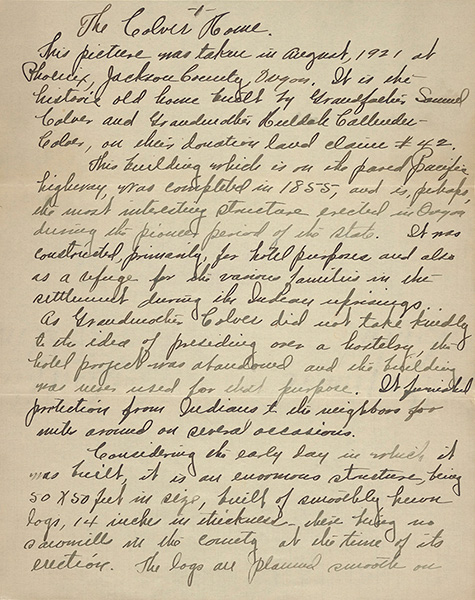 The Colver Home.
This picture was taken in August, 1921 at
Phoenix, Jackson County, Oregon. It is the
historic old home built by Grandfather Samuel
Colver and Grandmother Huldah Callender-
Colver, on their donation land claim #42.
This building which is on the paved Pacific
highway, was completed in 1855, and is, perhaps,
the most interesting structure erected in Oregon
during the pioneer period of the state. It was
constructed, primarily, for hotel purposes and also
as a refuge for the various families in the
settlement during the Indian uprisings.
As Grandmother Colver did not take kindly
to the idea of presiding over a hostelry, the
hotel project was abandoned and the building
was never used for that purpose. It furnished
protection from Indians to the neighbors for
miles around on several occasions.
Considering the early day in which it
was built, it is an enormous structure, being
50 X 50 feet in size, built of smoothly hewn
logs, 14 inches in thickness - there being no
sawmills in the county at the time of its
erection. The logs are planned smooth on